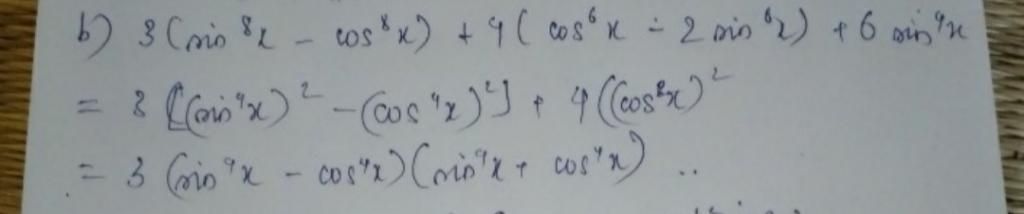 b) 3(sin⁸x - cos⁸x) + 4(cos⁶x - 2sin⁶x) + 6 sin⁴x
= 3[(sin⁴x)² - (cos⁴x)²] + 4((cos²x)²
= 3(sin⁴x - cos⁴x)(sin⁴x + cos⁴x) ..